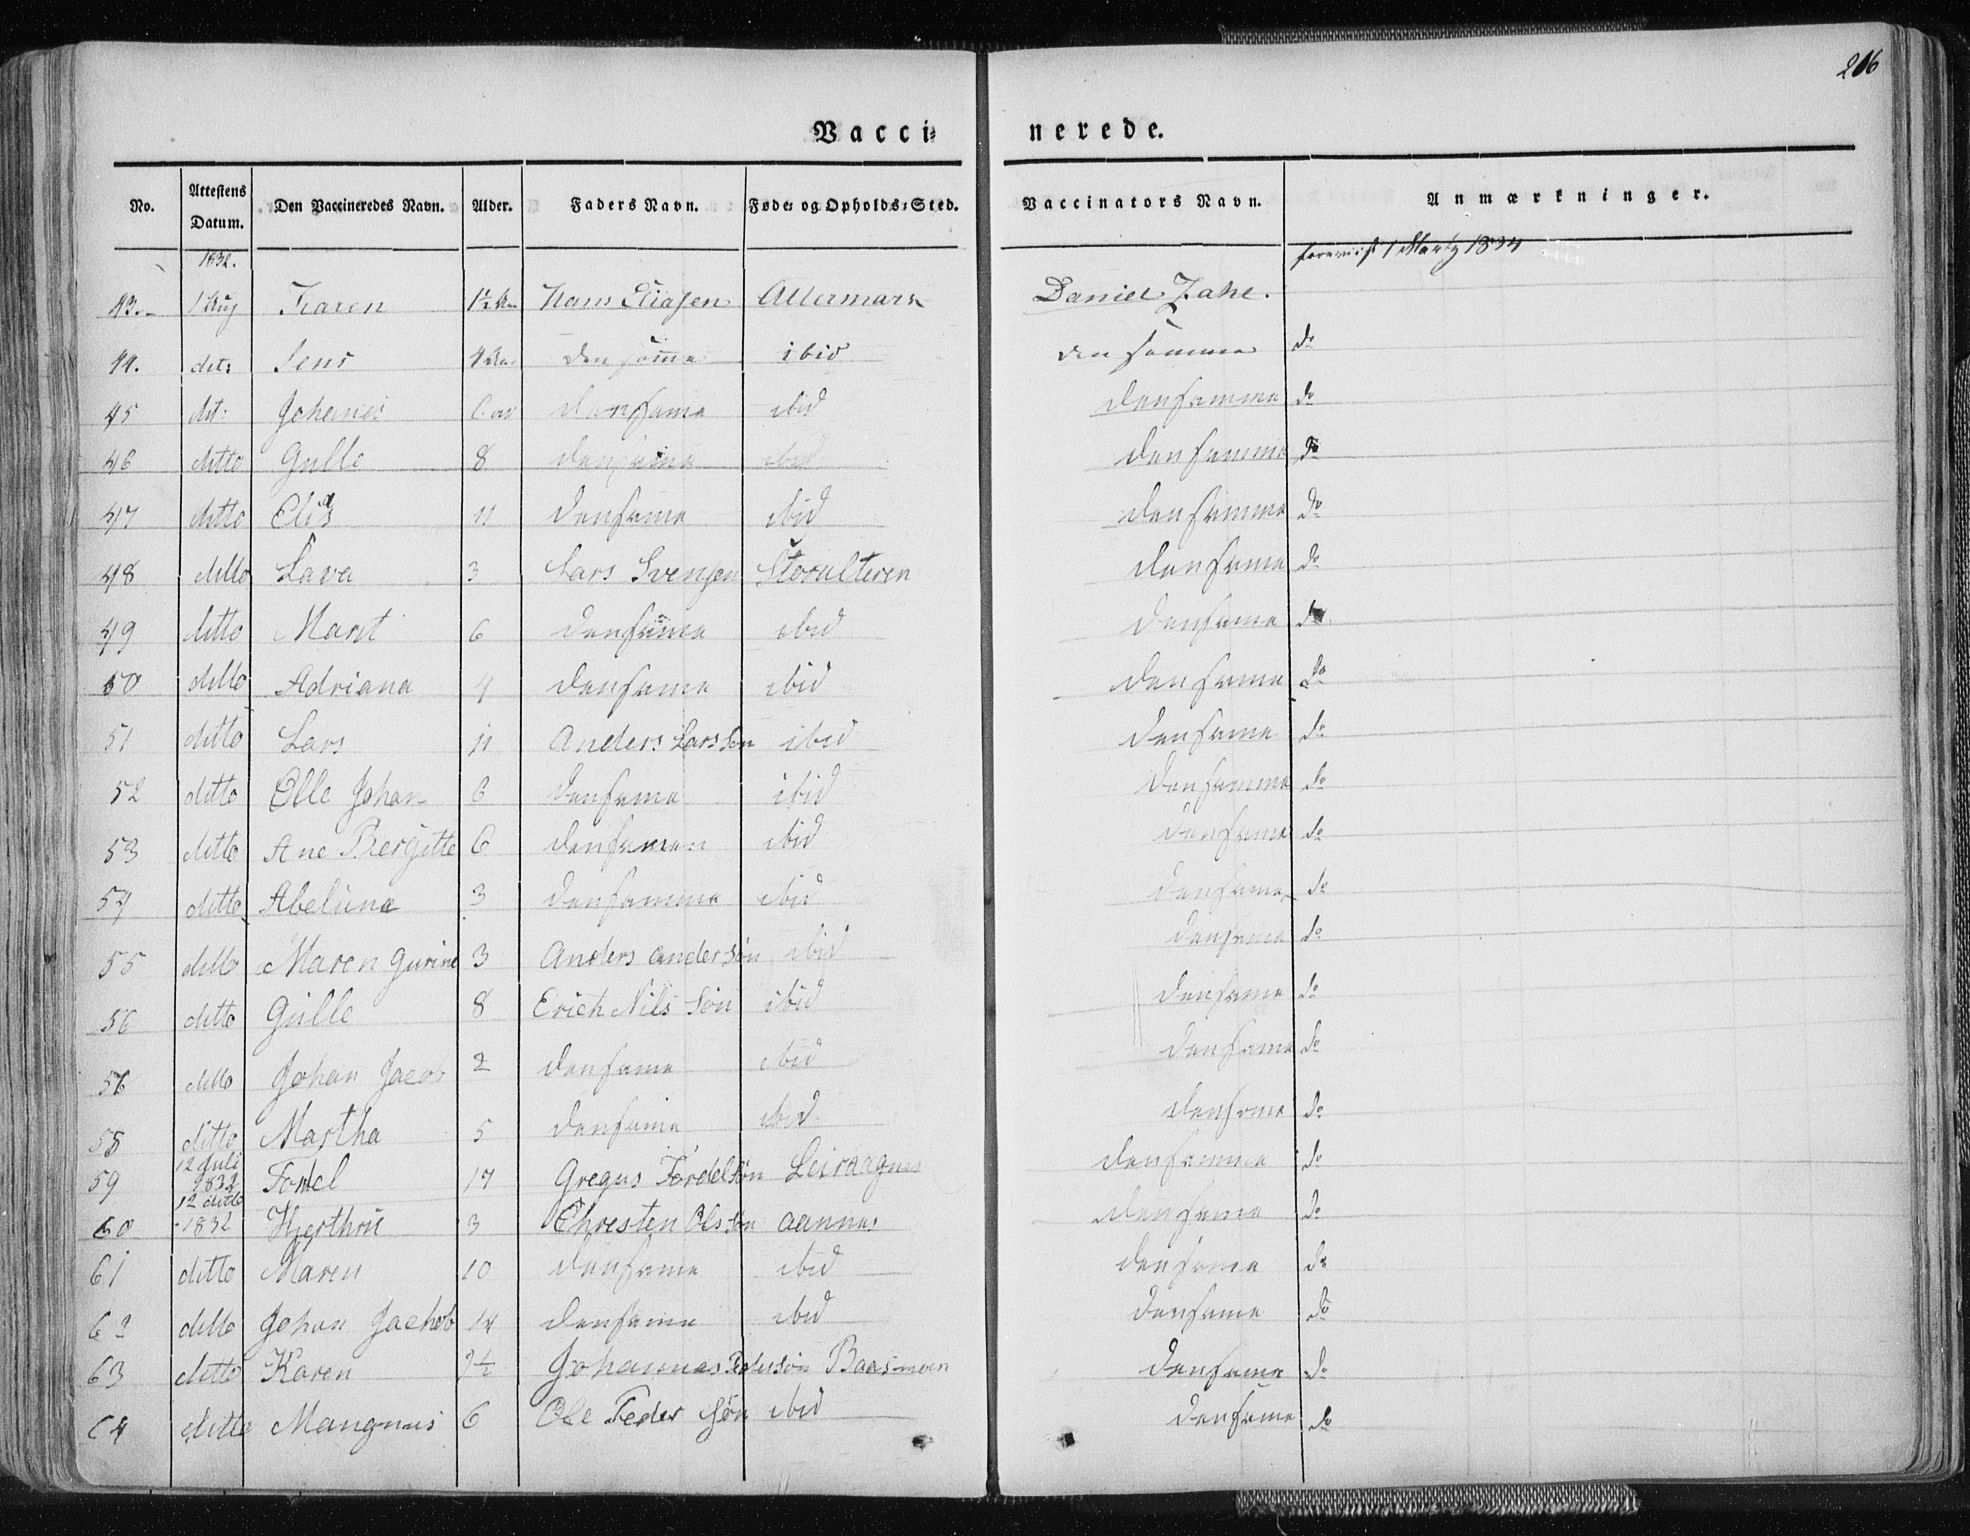 206
Vacci= nerede.
No. Attestens Datum. Den Vaccineredes Navn. Alder. Faders Navn. Føde= og Opholds=Sted. Vaccinators Navn. Anmærkninger.
1832. 1 Martz 1834
43. 1 Aug Karen 1½ Hans Eliasen Altermark Daniel Zahl.
44. det: Jens 4 den same ibid den samme do
45 det: Johanes 6 densame ibid densamme do
46 ditto Gulle 8 densame ibid densamme do
47 ditto Elias 11 densame ibid densamme do
48 ditto Lava 3 Lars Svensen Storalteren densame do
49 ditto Marit 6 densame ibid densame do
50 ditto Adriana 4 densame ibid densame do
51 ditto Lars 11 Anders Larssøn ibid densame do
52 ditto Olle Johan 6 densame ibid densamme do
53 ditto Ane Bergitte 6 densamen ibid densame do
54 ditto Abelune 3 densamme ibid densame do
55 ditto Maren Gurine 3 Anders andersøn ibid densame do
56 ditto Gulle 8 Erich Nils Søn ibid densame do
56 ditto Johan Jacob 2 densame ibid densame do
58 ditto Martha 5 densame ibid densame do
59 12 Juli 1832 Fordel 17 Gregus Fordelsøn densamme do
60 12 ditto 1832 3 Chresten Olssøn aannes densame do
61 ditto Maren 10 densame ibid densame do
62 ditto Johan Jachob 14 densame ibid densame do
63 ditto Karen Johannas Pedersøn Baasmoen densame do
64 ditto Mangnus 6 Ole Peder søn ibid densame do